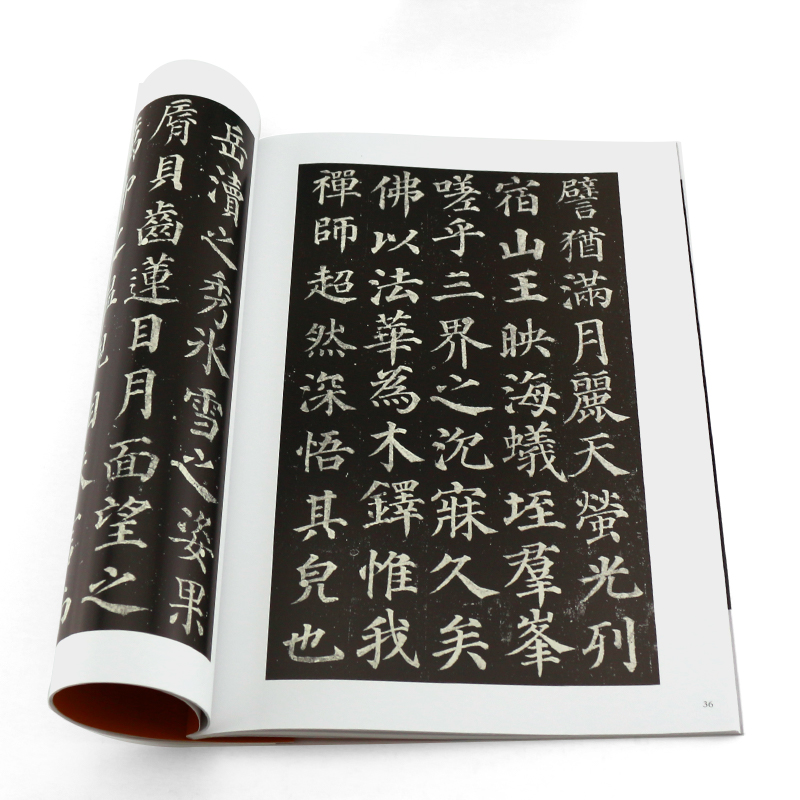 譬猶滿月麗天螢光列
宿山王映海蟻垤羣峯
嗟乎三界之沉寐久矣
佛以法華為木鐸惟我
禪師超然深悟其皃也
36
岳瀆之秀冰雪之姿果
脣貝齒蓮目月面望之